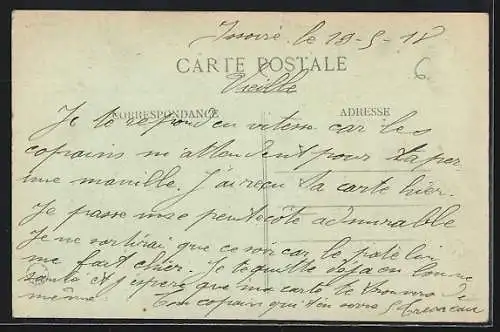 Issoire le 19-5-18
CARTE POSTALE
Vieille
CORRESPONDANCE
ADRESSE
Je te repond en vitesse car les
copains m'attendent pour taper
une manille. J'ai reçu ta carte hier.
Je passe une pentecôte admirable
Je ne sortirai que ce soir car le patelin
me fait chier. Je te quitte déja en bonne
santé et j'espère que ma carte te trouvera de
même. Ton copain qui t'en serre 5
6